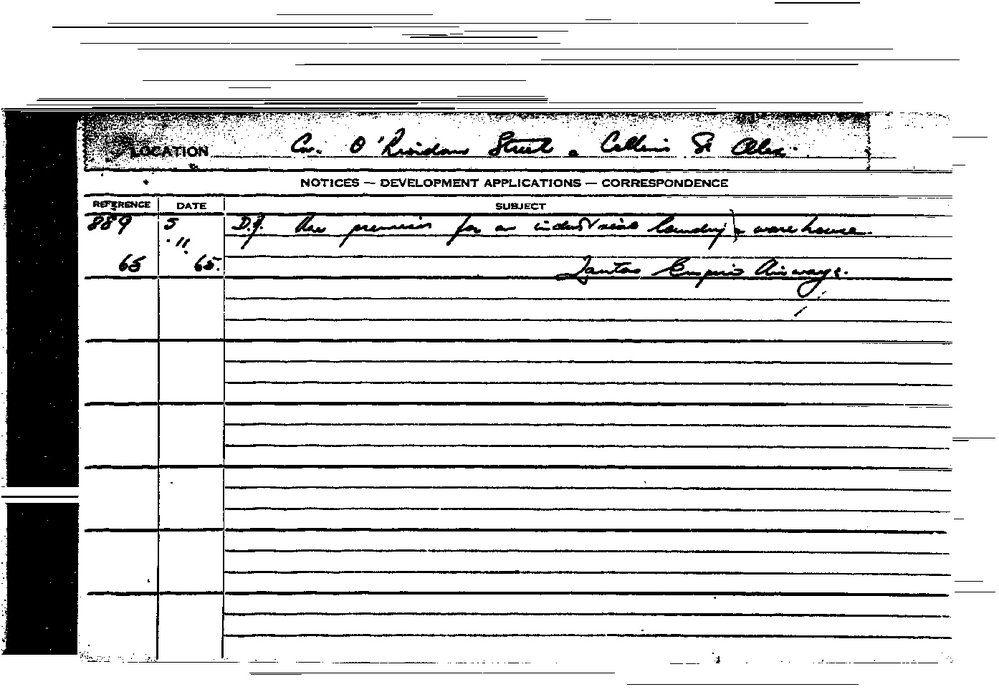 LOCATION Cn. O'Riordan Street & Collins St Alex.
NOTICES — DEVELOPMENT APPLICATIONS — CORRESPONDENCE
REFERENCE DATE SUBJECT
889 5 D.A. Use premises for an industrial laundry & warehouse.
11
65 65. Qantas Empire Airways.